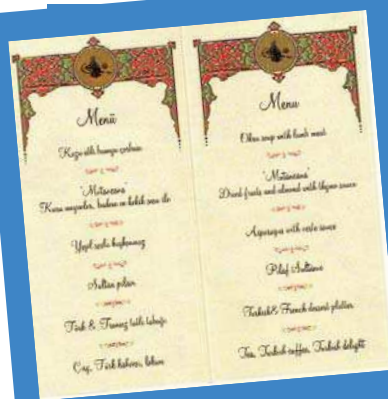 Menü
Kuzu etli bamya çorbası
'Mutancana'
Kuru meyveler, badem ve kekik sosu ile
Yeşil soslu kuşkonmaz
Sultan pilavı
Türk & Fransız tatlı tabağı
Çay, Türk kahvesi, lokum
Menu
Okra soup with lamb meat
'Mutancana'
Dried fruits and almond with thyme sauce
Asparagus with verte sauce
Pilaf Sultane
Turkish & French dessert platter
Tea, Turkish coffee, Turkish delight